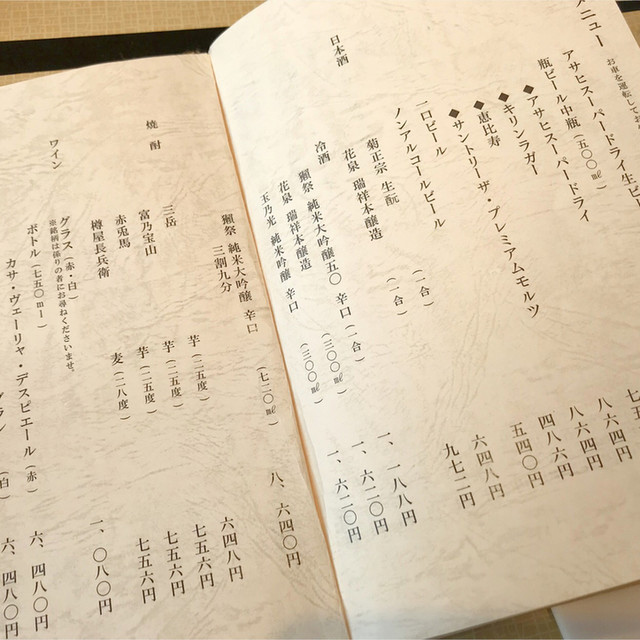 メニュー
お車を運転してお
アサヒスーパードライ生ビ
瓶ビール中瓶（五〇〇㎖）
◆アサヒスーパードライ
◆キリンラガー
◆恵比寿
◆サントリーザ・プレミアムモルツ
一口ビール
ノンアルコールビール
七五
八六四
八六四円
八六四円
五四〇円
日本酒
菊正宗 生酛 （一合） 六四八円
花泉 瑞祥本醸造 （一合） 九七二
冷酒
獺祭 純米大吟醸五〇 辛口 （一合） 一、一八八円
花泉 瑞祥本醸造 （三〇〇㎖） 一、六二〇円
玉乃光 純米吟醸 辛口 （三〇〇㎖） 一、六二〇円
獺祭 純米大吟醸 辛口 （七二〇㎖） 八、六四〇円
三割九分
焼酎
三岳 芋（二五度） 六四八円
富乃宝山 芋（二五度） 七五六円
赤兎馬 芋（二五度） 七五六円
樽屋長兵衛 麦（二八度） 七五六円
ワイン
グラス（赤・白） 一、〇八〇円
※銘柄は係りの者にお尋ねくださいませ。
ボトル（七五〇ml）
カサ・ヴェーリャ・デスピエール（赤） 六、四八〇円
（白） 六、四八〇円